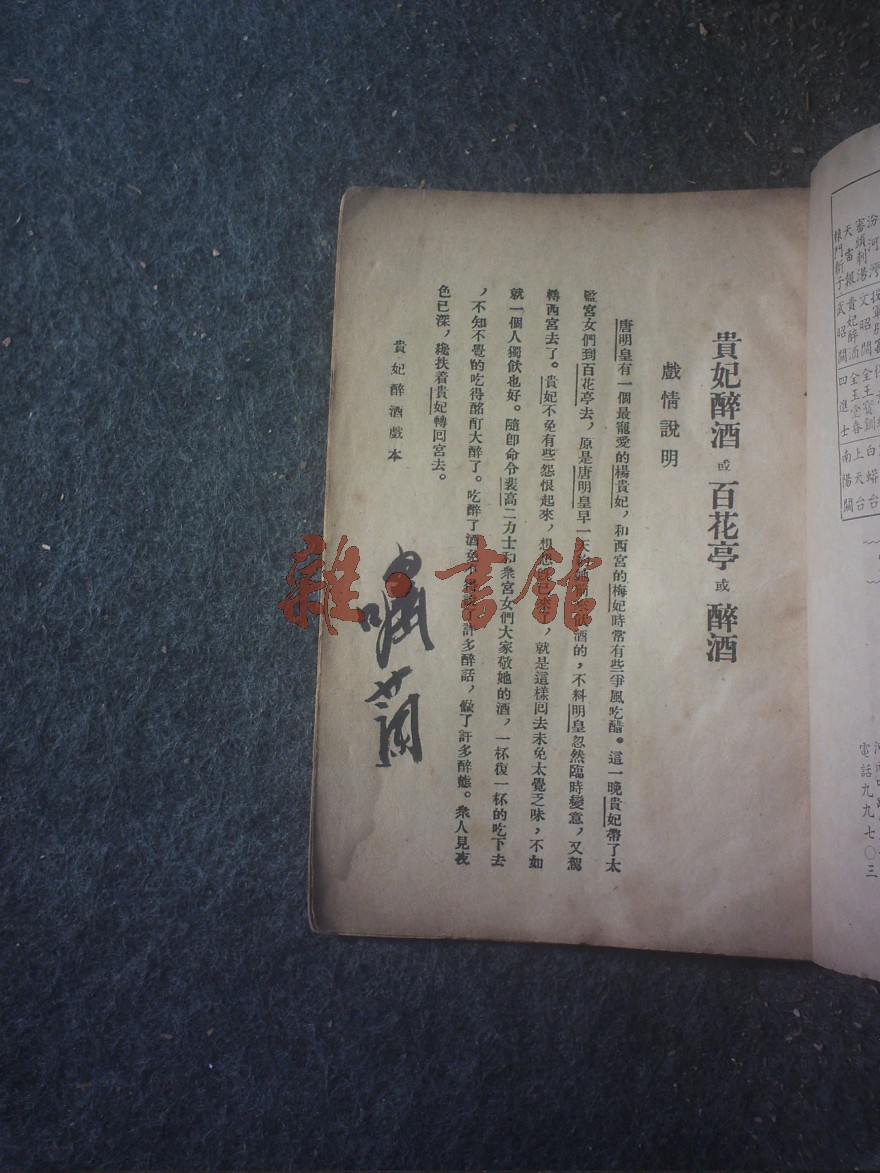 汾河灣
審頭刺湯
天雷報
轅門斬子
文昭關
貴妃醉酒
武昭關
全王寶釧
全玉堂春
四進士
白蟒台
上天台
南陽關
電話九九七〇三
貴妃醉酒 或 百花亭 或 醉酒
戲情說明
唐明皇有一個最寵愛的楊貴妃,和西宮的梅妃時常有些爭風吃醋。這一晚貴妃帶了太
監宮女們到百花亭去,原是唐明皇早一天約她前來飲酒的,不料明皇忽然臨時變意,又駕
轉西宮去了。貴妃不免有些怨恨起來,想想既已來了,就是這樣回去未免太覺乏味,不如
就一個人獨飲也好。隨即命令裴高二力士和衆宮女們大家敬她的酒,一杯復一杯的吃下去
,不知不覺的吃得酩酊大醉了。吃醉了酒免不得說了許多醉話,做了許多醉態。衆人見夜
色已深,纔扶着貴妃轉回宮去。
貴妃醉酒戲本
嘯
雜·書館